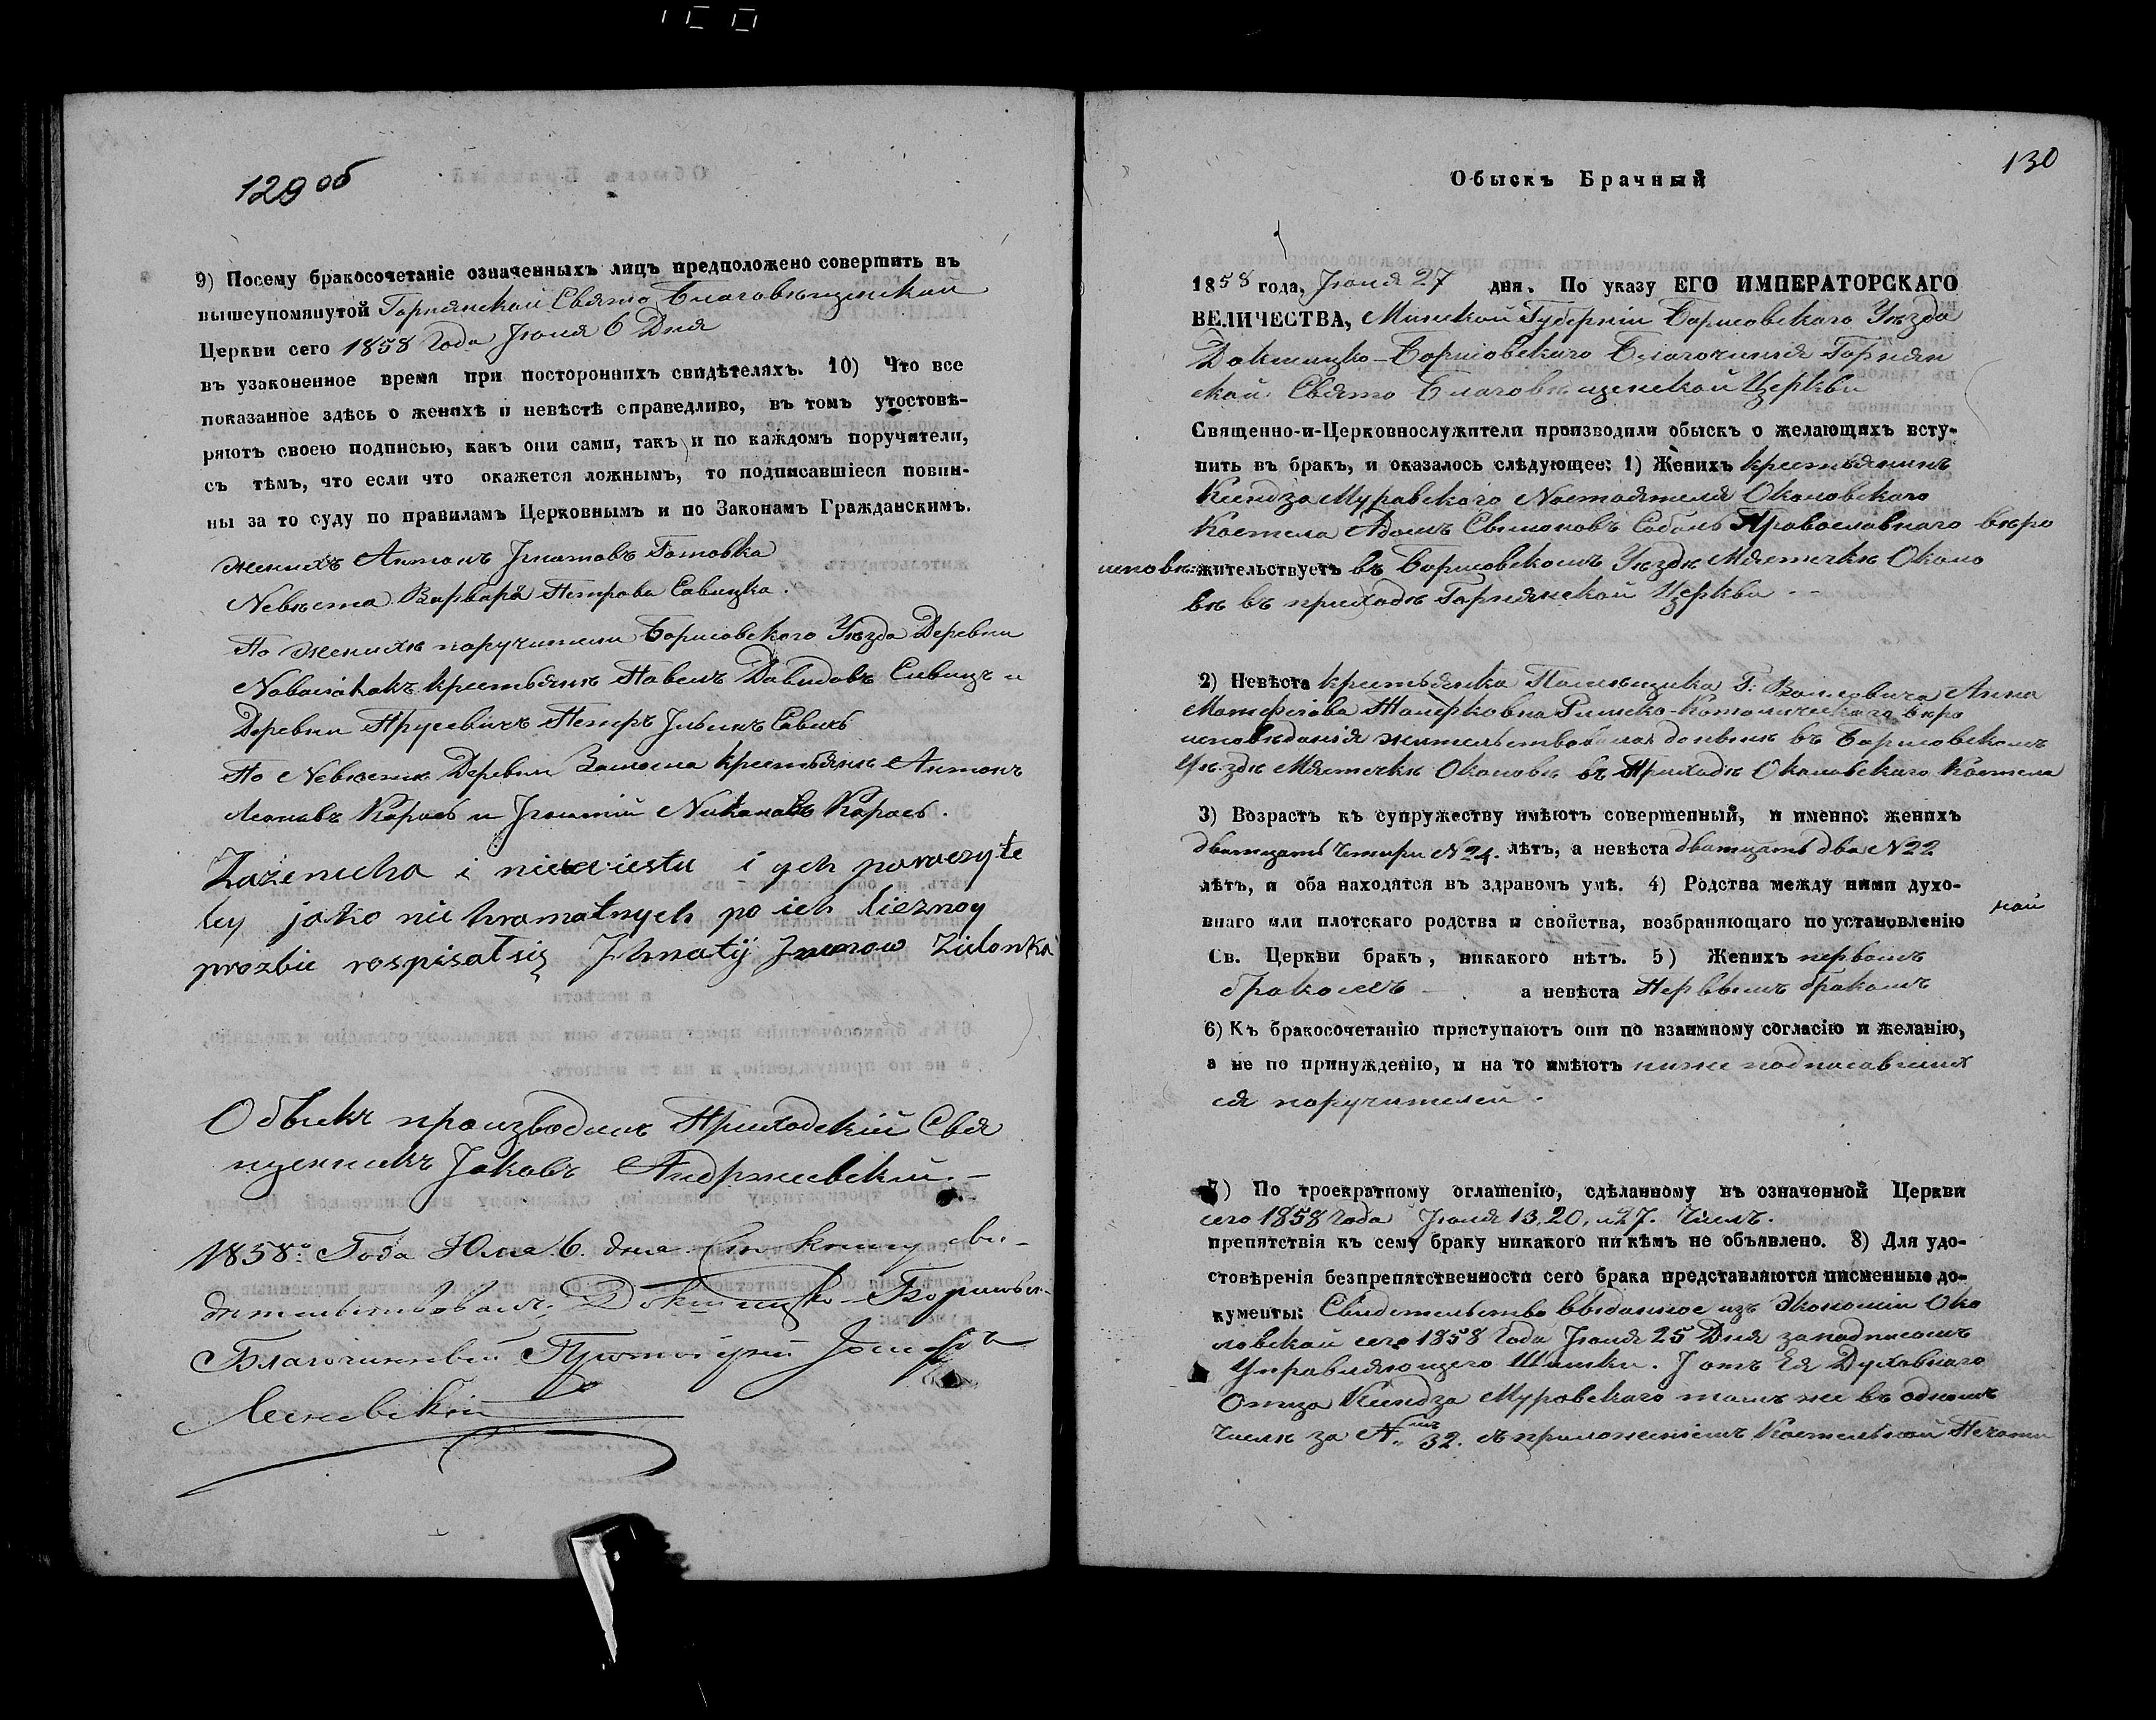 129 об
9) Посему бракосочетаніе означенныхъ лицъ предположено совершить въ
вышеупомянутой Горнянской Свято Благовѣщенской
Церкви сего 1858 Года Іюля 6 Дня
въ узаконенное время при постороннихъ свидѣтеляхъ. 10) Что все
показанное здѣсь о женихѣ и невѣстѣ справедливо, въ томъ утостовѣ-
ряютъ своею подписью, какъ они сами, такъ и по каждомъ поручители,
съ тѣмъ, что если что окажется ложнымъ, то подписавшіеся повин-
ны за то суду по правиламъ Церковнымъ и по Законамъ Гражданскимъ.
женихъ Антонъ Игнатовъ Готовка
Невѣста Варвара Петрова Савицка.
По женихѣ поручители Борисовскаго Уѣзда Деревни
крестьянѣ Павелъ Давидовъ Сивицъ и
Деревни Прусевичъ Петръ Ильинъ Савичъ
По Невѣстѣ Деревни крестьянѣ Антонъ
Леоновъ Карась и Игнатій Карась.
Za żenicha i niewiestu i ych poruczyte
ley jako nie hramatnych po ich licznoy
prozbie rospisałsię Ihnatij Zielonka
Обыскъ производилъ Приходскій Свя
щенникъ Іаковъ Андржеевскій.
1858: Года Юля 6. дня Сію книгу сви-
дѣтельствовалъ: Докшицко-Борисовск-
Благочинный Протоіерей Іосифъ
130
Обыскъ Брачный
1858 года, Іюня 27 дня. По указу ЕГО ИМПЕРАТОРСКАГО
ВЕЛИЧЕСТВА, Минской Губерніи Борисовскаго Уѣзда
Докшицко-Борисовскаго Благочинія Горнян
ской Свято Благовѣщенской Церкви
Священно-и-Церковнослужители производили обыскъ о желающихъ всту-
пить въ бракъ, и оказалось слѣдующее: 1) Женихъ крестьянинъ
Ксендза Муравского Настоятеля Околовскаго
Костела Адамъ Соболь Православнаго вѣро
исповѣ: жительствуетъ въ Борисовскомъ Уѣздѣ Мястечкѣ Около
вѣ въ приходѣ Горнянской Церкви
2) Невѣста крестьянка Помѣщика Г: Анна
Римско-Католическаго вѣро
исповѣданія жительствовала донынѣ въ Борисовскомъ
Уѣздѣ Мястечкѣ Околовѣ въ Приходѣ Околовскаго Костела
3) Возрастъ къ супружеству имѣютъ совершенный, и именно: женихъ
дватцать четыри №24. лѣтъ, а невѣста дватцать два №22
лѣтъ, и оба находятся въ здравомъ умѣ. 4) Родства между ними духо-
внаго или плотскаго родства и свойства, возбраняющаго по установленію
Св. Церкви бракъ, никакого нѣтъ. 5) Женихъ первымъ
бракомъ а невѣста Первымъ бракомъ
6) Къ бракосочетанію приступаютъ они по взаимному согласію и желанію,
а не по принужденію, и на то имѣютъ ниже подписавших
ся поручителей.
7) По троекратному оглашенію, сдѣланному въ означенной Церкви
сего 1858 Года Іюня 13, 20, и 27. Числъ.
препятствія къ сему браку никакого ни кѣмъ не объявлено. 8) Для удо-
стовѣренія безпрепятственности сего брака представляются писменные до-
кументы: Свидетельство выданное изъ Экономіи Око
ловской сего 1858 Года Іюня 25 Дня за подписомъ
Управляющего Шишки. И отъ Ея Духовнаго
Отца Ксендза Муровскаго томъ же въ одномъ
Числѣ за № 32. съ приложеніемъ Костельной Печати